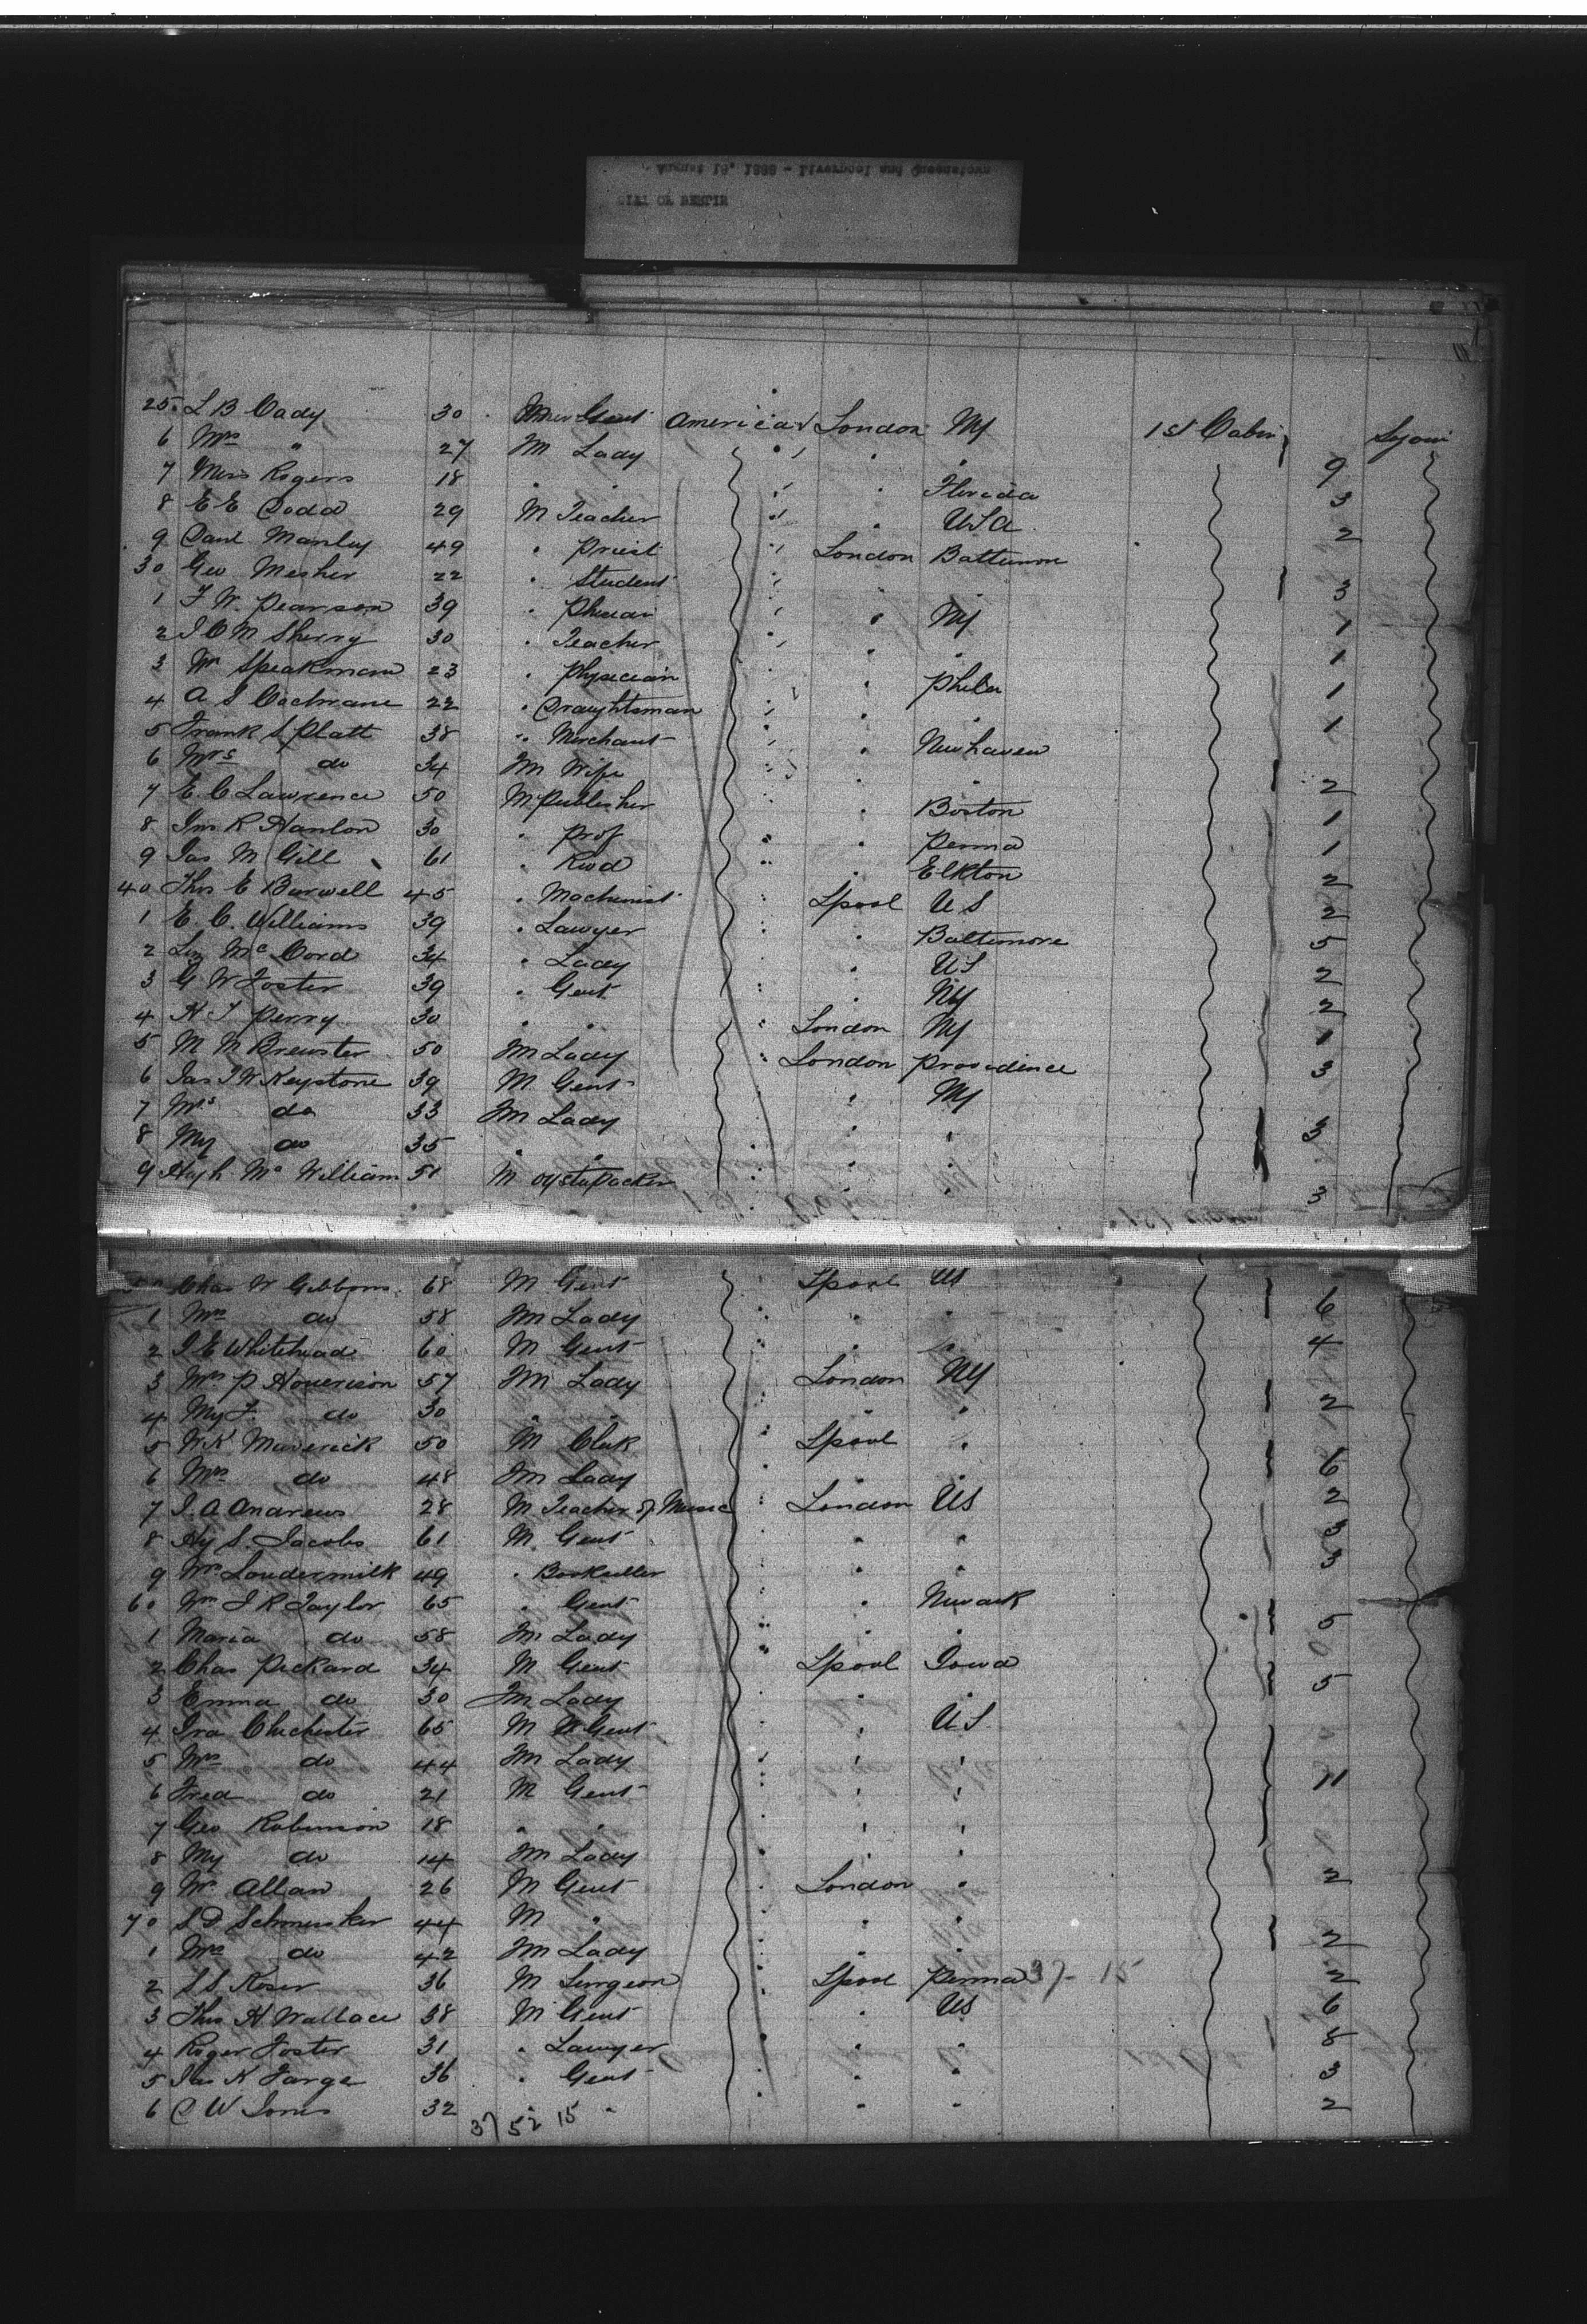 August 19, 1889 - Liverpool and Queenstown
CITY OF BERLIN
25 L B Cady 30 Gent American London NY 1st Cabin Sojour
6 Mrs " 27 fm Lady 9
7 Miss Rogers 18 Florida 3
8 E E Dodd 29 M Teacher USA 2
9 Danl Manley 49 Priest London Baltimore
30 Geo Mesher 22 Student 3
1 F W Pearson 39 NY 1
2 J C M Sherry 30 Teacher 1
3 Wm Speakman 23 Physician Phila 1
4 A S Cochrane 22 Draughtsman 1
5 Frank S Platt 38 Merchant Newhaven
6 Mrs do 34 fm Wife 2
7 E C Lawrence 50 M Publisher Boston 1
8 Jno R Hanlon 30 Prof Penna 1
9 Jas M Gill 61 Revd Elkton 2
40 Thos E Burwell 45 Machinist Lpool US 2
1 E. C. Williams 39 Lawyer Baltimore 5
2 Liz McCord 34 Lady US 2
3 G W Foster 39 Gent NY 2
4 H J Perry 30 " " London NY 1
5 M M Brewster 50 fm Lady London Providence 3
6 Jas J W Keystone 39 M Gent NY
7 Mrs do 33 fm Lady 3
8 My do 35 " "
9 Hugh Mc William 51 M oyster Packer 3
50 Chas W Gibbons 68 M Gent Lpool US
1 Mrs do 58 fm Lady 6
2 J E Whitehead 60 M Gent 4
3 Mrs P 57 fm Lady London NY
4 My F. do 30 " " 2
5 W K Maverick 50 M Clerk Lpool "
6 Mrs do 48 fm Lady 6
7 J. A Andrews 28 M Teacher of Music London US 2
8 Hy S. Jacobs 61 M Gent 3
9 Wm Loudermilk 49 Bookseller 3
60 Wm J R Taylor 65 Gent Newark
1 Maria do 58 fm Lady 5
2 Chas Pickard 34 M Gent Lpool Iowa
3 Emma do 30 fm Lady 5
4 Ira Chichester 65 M Gent US
5 Mrs do 44 fm Lady
6 Fred do 21 M Gent 11
7 Geo Robinson 18 " "
8 My do 14 fm Lady
9 Wm Allan 26 M Gent London " 2
70 S D Schmucker 44 M "
1 Mrs do 42 fm Lady 2
2 S S Koser 36 M Surgeon Lpool Penna 37 - 15 2
3 Thos H Wallace 38 M Gent US 6
4 Roger Foster 31 Lawyer 8
5 Jas K Farge 36 Gent 3
6 C W Jones 32 " " 2
37 52 15